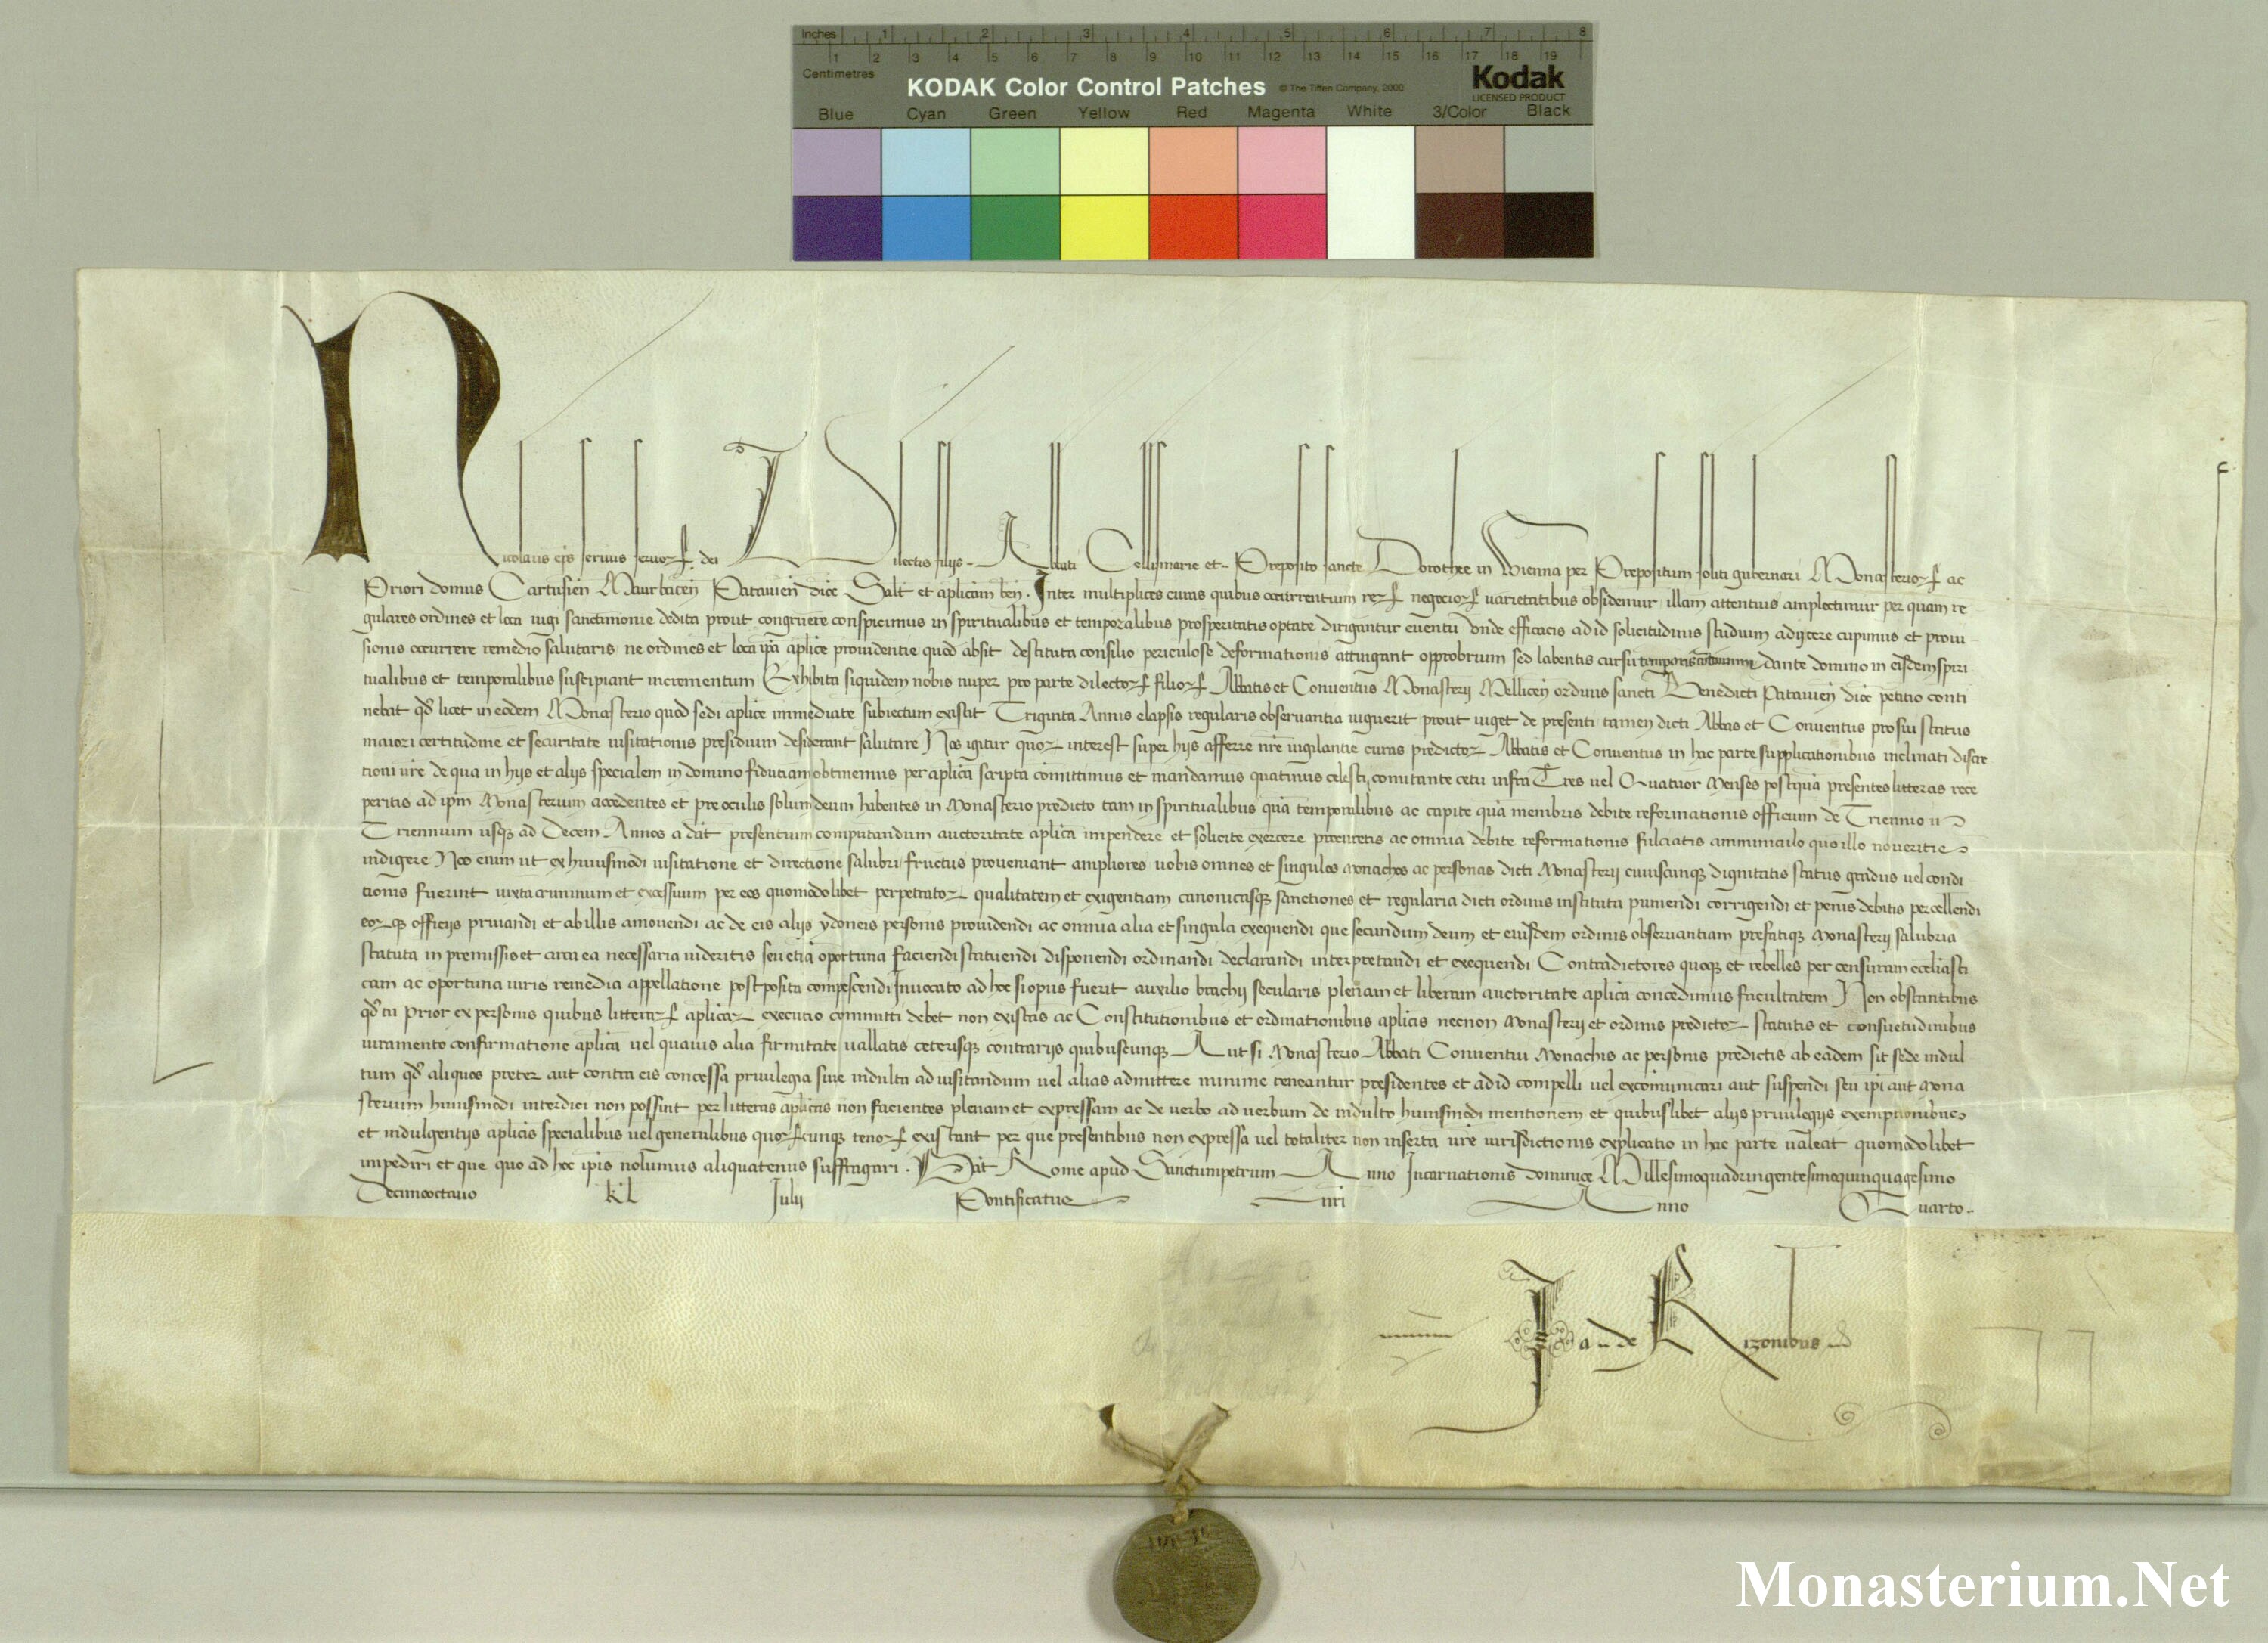 Inches 1 2 3 4 5 6 7 8
1 2 3 4 5 6 7 8 9 10 11 12 13 14 15 16 17 18 19
Centimetres
KODAK Color Control Patches © The Tiffen Company, 2000 Kodak
LICENSED PRODUCT
Blue Cyan Green Yellow Red Magenta White 3/Color Black
Nicolaus eps servus servor dei Dilectis filijs Abbati Cellismarie et Preposito sancte Dorothee in Wienna per Prepositum soliti gubernari Monasterior ac
Priori domus Cartusien Maurbacen Patavien dioc Salt et aplicam ben. Inter multiplices curas quibus occurrentium rer negocior varietatibus obsidemur illam attentius amplectimur per quam re
gulares ordines et loca iugi sanctimonie dedita prout congruere conspicimus in spiritualibus et temporalibus prosperitatis optate dirigantur eventu Unde efficacis ad id solicitudinis studium adijcere cupimus et provi
sionis occurrere remedio salutaris ne ordines et loca ipa aplice providentie quod absit destituta consilio periculose deformationis attingant opprobrium sed labentis cursu temporis dante domino in eisdem spiri
tualibus et temporalibus suscipiant incrementum Exhibita siquidem nobis nuper pro parte dilector filior Abbatis et Conventus Monasterij Mellicen ordinis sancti Benedicti Patavien dioc petitio conti
nebat qd licet in eodem Monasterio quod sedi aplice immediate subiectum existit Triginta Annis elapsis regularis observantia viguerit prout viget de presenti tamen dicti Abbas et Conventus pro sui status
maiori certitudine et securitate visitationis presidium desiderant salutare Nos igitur quor interest super hijs afferre nre vigilantie curas predictor Abbatis et Conventus in hac parte supplicationibus inclinati discre
tioni vre de qua in hijs et alijs specialem in domino fiduciam obtinemus per aplica scripta comittimus et mandamus quatinus celesti comitante cetu infra Tres vel Quatuor Menses postqua presentes litteras rece
peritis ad ipm Monasterium accedentes et pre oculis solum deum habentes in Monasterio predicto tam in spiritualibus qua temporalibus ac capite qua membris debite reformationis officium de Triennio in
Triennium usq ad Decem Annos a dat presentium computandum auctoritate aplica impendere et solicite exercere procuretis ac omnia debite reformationis fulciatis amminiculo quo illo noveritis
indigere Nos enim ut ex huiusmodi visitatione et directione salubri fructus proveniant ampliores vobis omnes et singulos Monachos ac personas dicti Monasterij cuiuscunq dignitatis status gradus vel condi
tionis fuerint iuxta criminum et excessuum per eos quomodolibet perpetrator qualitatem et exigentiam canonicasq sanctiones et regularia dicti ordinis instituta puniendi corrigendi et penis debitis percellendi
eorq officijs privandi et ab illis amovendi ac de eis alijs ydoneis personis providendi ac omnia alia et singula exequendi que secundum deum et eiusdem ordinis observantiam prefatiq Monasterij salubria
statuta in premissis et circa ea necessaria videritis seu etia oportuna faciendi statuendi disponendi ordinandi declarandi interpretandi et exequendi Contradictores quoq et rebelles per censuram eccliasti
cam ac oportuna iuris remedia appellatione postposita compescendi Invocato ad hoc si opus fuerit auxilio brachij secularis plenam et liberam auctoritate aplica concedimus facultatem Non obstantibus
qd tu Prior ex personis quibus litterar aplicar executio committi debet non existas ac Constitutionibus et ordinationibus aplicis necnon Monasterij et ordinis predictor statutis et consuetudinibus
iuramento confirmatione aplica vel quavis alia firmitate vallatis ceterisq contrarijs quibuscunq Aut si Monasterio Abbati Conventui Monachis ac personis predictis ab eadem sit sede indul
tum qd aliquos preter aut contra eis concessa privilegia sive indulta ad visitandum vel alias admittere minime teneantur presidentes et ad id compelli vel excomunicari aut suspendi seu ipi aut Mona
sterium huiusmodi interdici non possint per litteras aplicas non facientes plenam et expressam ac de verbo ad verbum de indulto huiusmodi mentionem et quibuslibet alijs privilegijs exemptionibus
et indulgentijs aplicis specialibus vel generalibus quorcunq tenor existant per que presentibus non expressa vel totaliter non inserta vre iurisdictionis explicatio in hac parte valeat quomodolibet
impediri et que quo ad hoc ipis nolumus aliquatenus suffragari. Dat Rome apud Sanctumpetrum Anno Incarnationis dominice Millesimoquadringentesimoquinquagesimo
Decimooctavo kl Julij Pontificatus nri Anno Quarto
Ja de Rizonibus
Monasterium.Net